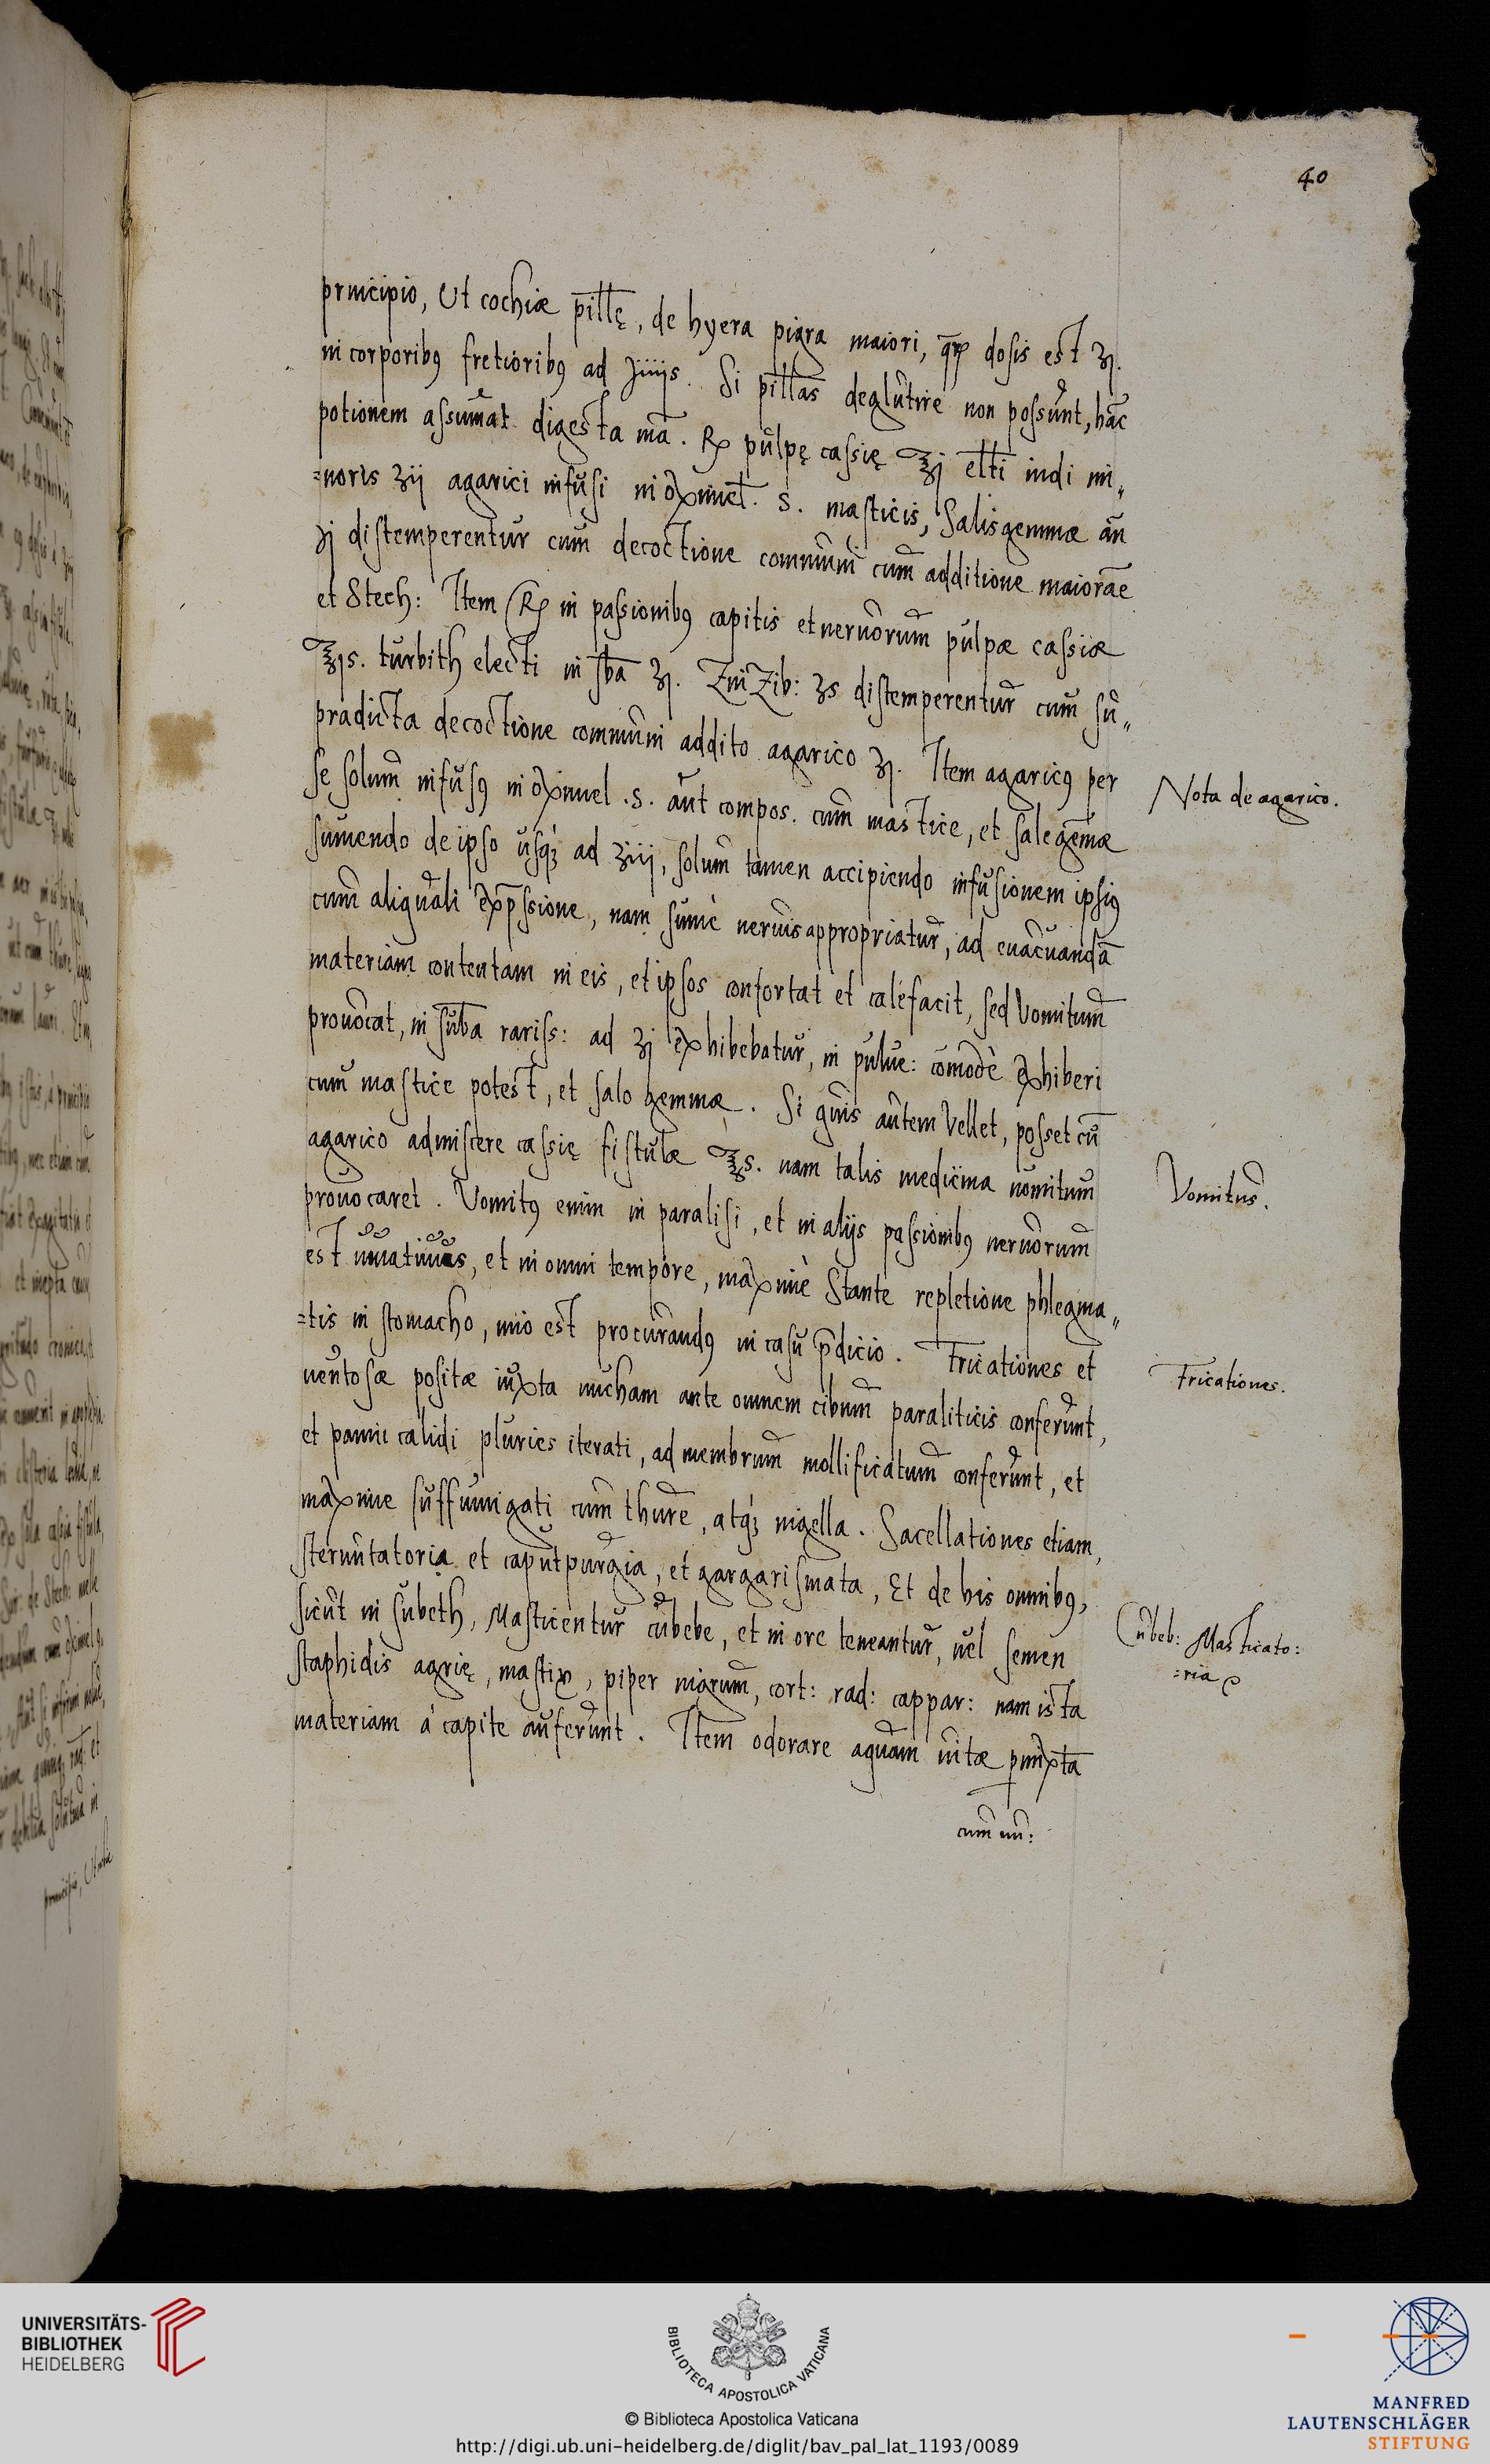 40
principio, Ut cochiæ pillę, de hyera pigra maiori, qrũ dosis est ʒj.
in corporibꝰ fretioribꝰ ad ʒiiijs. Si pillas deglutire non possunt, hãc
potionem assumat digesta mã. ℞ pulpę cassię ℥j eltti indi mi„
=noris ʒij agarici infusi in oximel. s. masticis, Salisgemmæ añ
ʒj distemperentur cum decoctione communi cum additione maioraẽ
et Stech: Item ℞ in passionibꝰ capitis et neruorum pulpæ cassiæ
℥js. turbith electi in sba ʒj. ZinZib: ʒs distemperentur cum su„
pradicta decoctione communi addito agarico ʒj. Item agaricꝰ per
se solum infusꝰ in oximel .s. aut compos. cum mastice, et salegẽmæ
sumendo de ipso usqꝫ ad ʒiij, solum tamen accipiendo infusionem ipsiꝰ
cum aliquali exp̃ssione, nam sumè neruis appropriatur, ad euacuandã
materiam contentam in eis, et ipsos confortat et calefacit, sed Vomitum
prouocat, in suba rariss: ad ʒj exhibebatur, in pulue: cõmodè exhiberi
cum mastice potest, et salo gemmæ. Si quis autem Vellet, posset cũ
agarico admiscere cassię fistulæ ℥s. nam talis medicina uomitum
prouocaret. Vomitꝰ enim in paralisi, et in alijs passionibꝰ neruorum
est iuuatiuus, et in omni tempore, maximè Stante repletione phlegma„
=tis in stomacho, imo est procurandꝰ in casu p̃dicio. Fricationes et
uentosæ positæ iuxta nucham ante omnem cibum paraliticis conferunt,
et panni calidi pluries iterati, ad membrum mollificatum conferunt, et
maxime suffumigati cum thure, atqꝫ nigella. Sacellationes etiam,
sternutatoria et caputpurgia, et gargarismata, Et de his omnibꝰ,
sicut in subeth, Masticentur cubebe, et in ore teneantur, uel semen
staphidis agrię, mastix, piper nigrum, cort: rad: cappar: nam ista
materiam á capite auferunt. Item odorare aquam uitæ p̱mixta
cum un:
Nota de agarico.
Vomitus.
Fricationes.
Cubeb: Masticato:
=ria
UNIVERSITÄTS-
BIBLIOTHEK
HEIDELBERG
BIBLIOTECA APOSTOLICA VATICANA
© Biblioteca Apostolica Vaticana
http://digi.ub.uni-heidelberg.de/diglit/bav_pal_lat_1193/0089
MANFRED
LAUTENSCHLÄGER
STIFTUNG